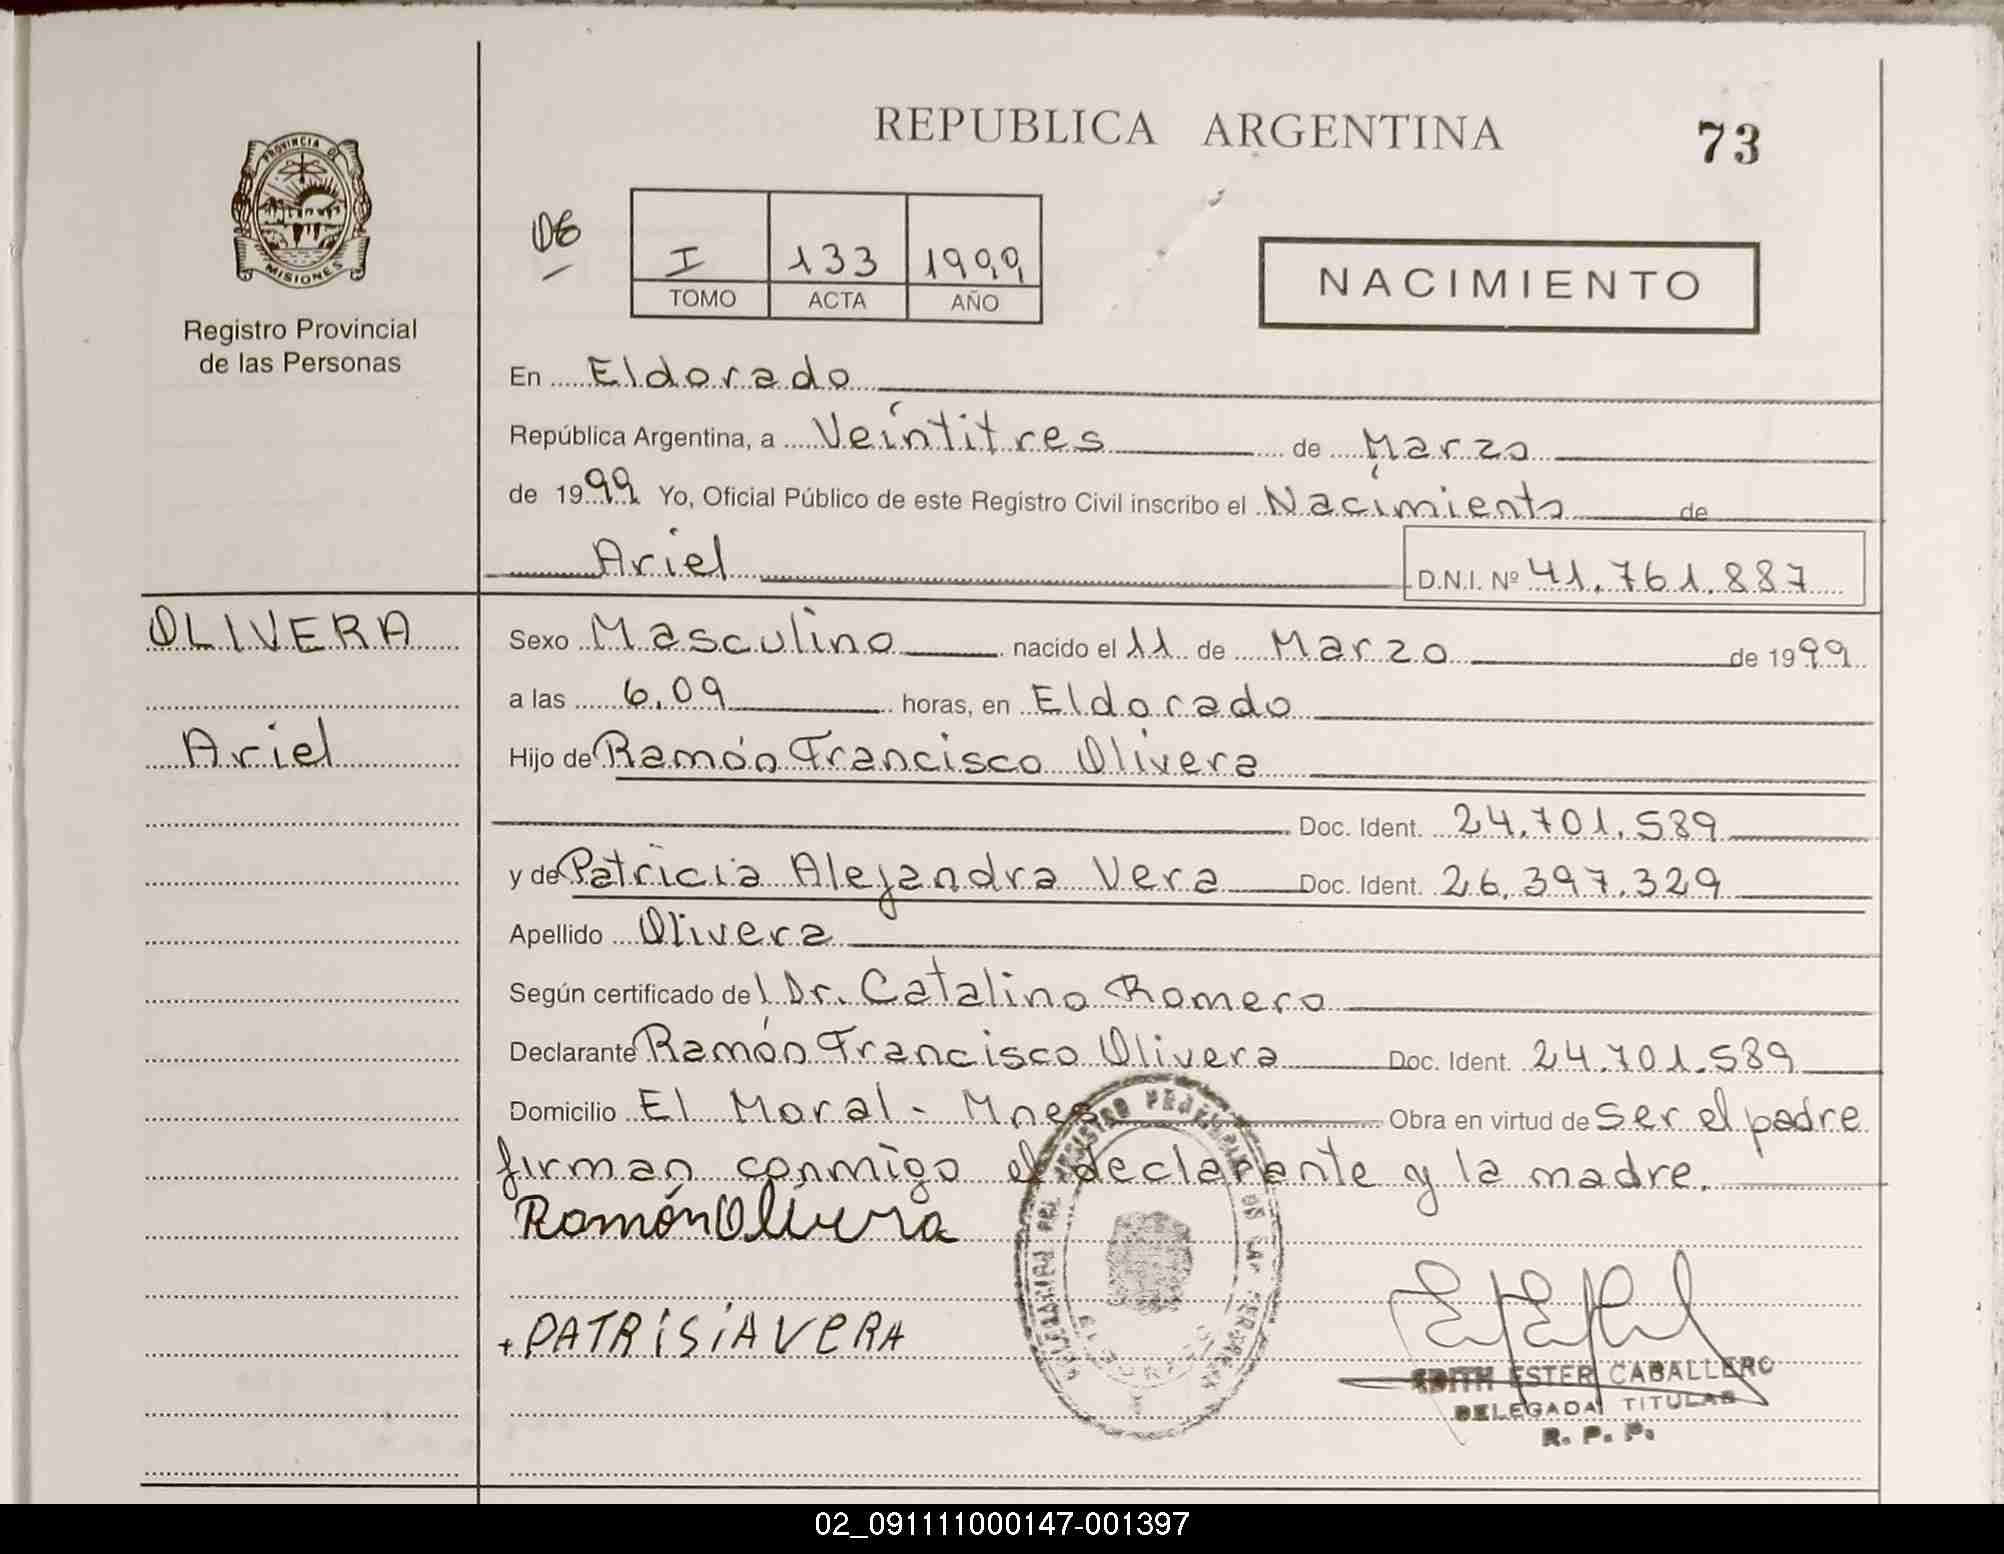 REPUBLICA ARGENTINA
73
PROVINCIA DE
MISIONES
Registro Provincial
de las Personas
I 133 1999
TOMO ACTA AÑO
NACIMIENTO
En Eldorado
República Argentina, a Veintitres de Marzo
de 1999 Yo, Oficial Público de este Registro Civil inscribo el Nacimiento de
Ariel D.N.I. Nº 41.761.887
OLIVERA
Ariel
Sexo Masculino nacido el 11 de Marzo de 1999
a las 6,09 horas, en Eldorado
Hijo de Ramón Francisco Olivera
Doc. Ident. 24.701.589
y de Patricia Alejandra Vera Doc. Ident. 26.397.329
Apellido Olivera
Según certificado del Dr. Catalino Romero
Declarante Ramón Francisco Olivera Doc. Ident. 24.701.589
Domicilio El Moral - Mnes Obra en virtud de ser el padre
firman conmigo el declarante y la madre.
Ramón Olivera
PATRISIA VERA
EDITH ESTER CABALLERO
DELEGADA TITULAR
R. P. P.
02_091111000147-001397